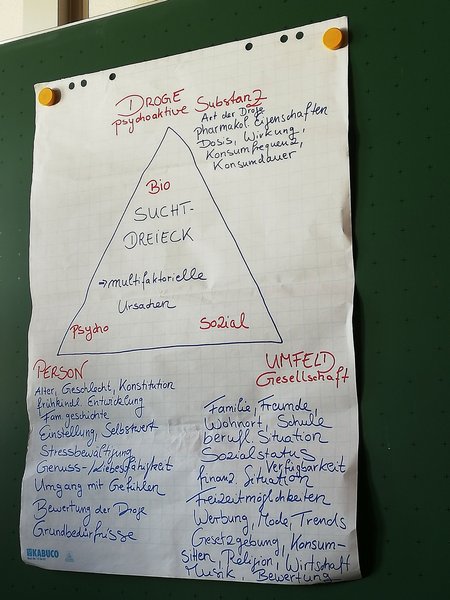 DROGE
psychoaktive Substanz
Art der Droge
pharmakol. Eigenschaften
Dosis, Wirkung,
Konsumfrequenz,
Konsumdauer
Bio
SUCHT-
DREIECK
→ multifaktorielle
Ursachen
Psycho
Sozial
PERSON
Alter, Geschlecht, Konstitution
frühkindl. Entwicklung
Fam.geschichte
Einstellung, Selbstwert
Stressbewältigung
Genuss-/Liebesfähigkeit
Umgang mit Gefühlen
Bewertung der Droge
Grundbedürfnisse
KABUCO
UMFELD
Gesellschaft
Familie, Freunde,
Wohnort, Schule
berufl. Situation
Sozialstatus
Verfügbarkeit
finanz. Situation
Freizeitmöglichkeiten
Werbung, Mode, Trends
Gesetzgebung, Konsum-
Sitten, Religion, Wirtschaft
Musik, Bewertung